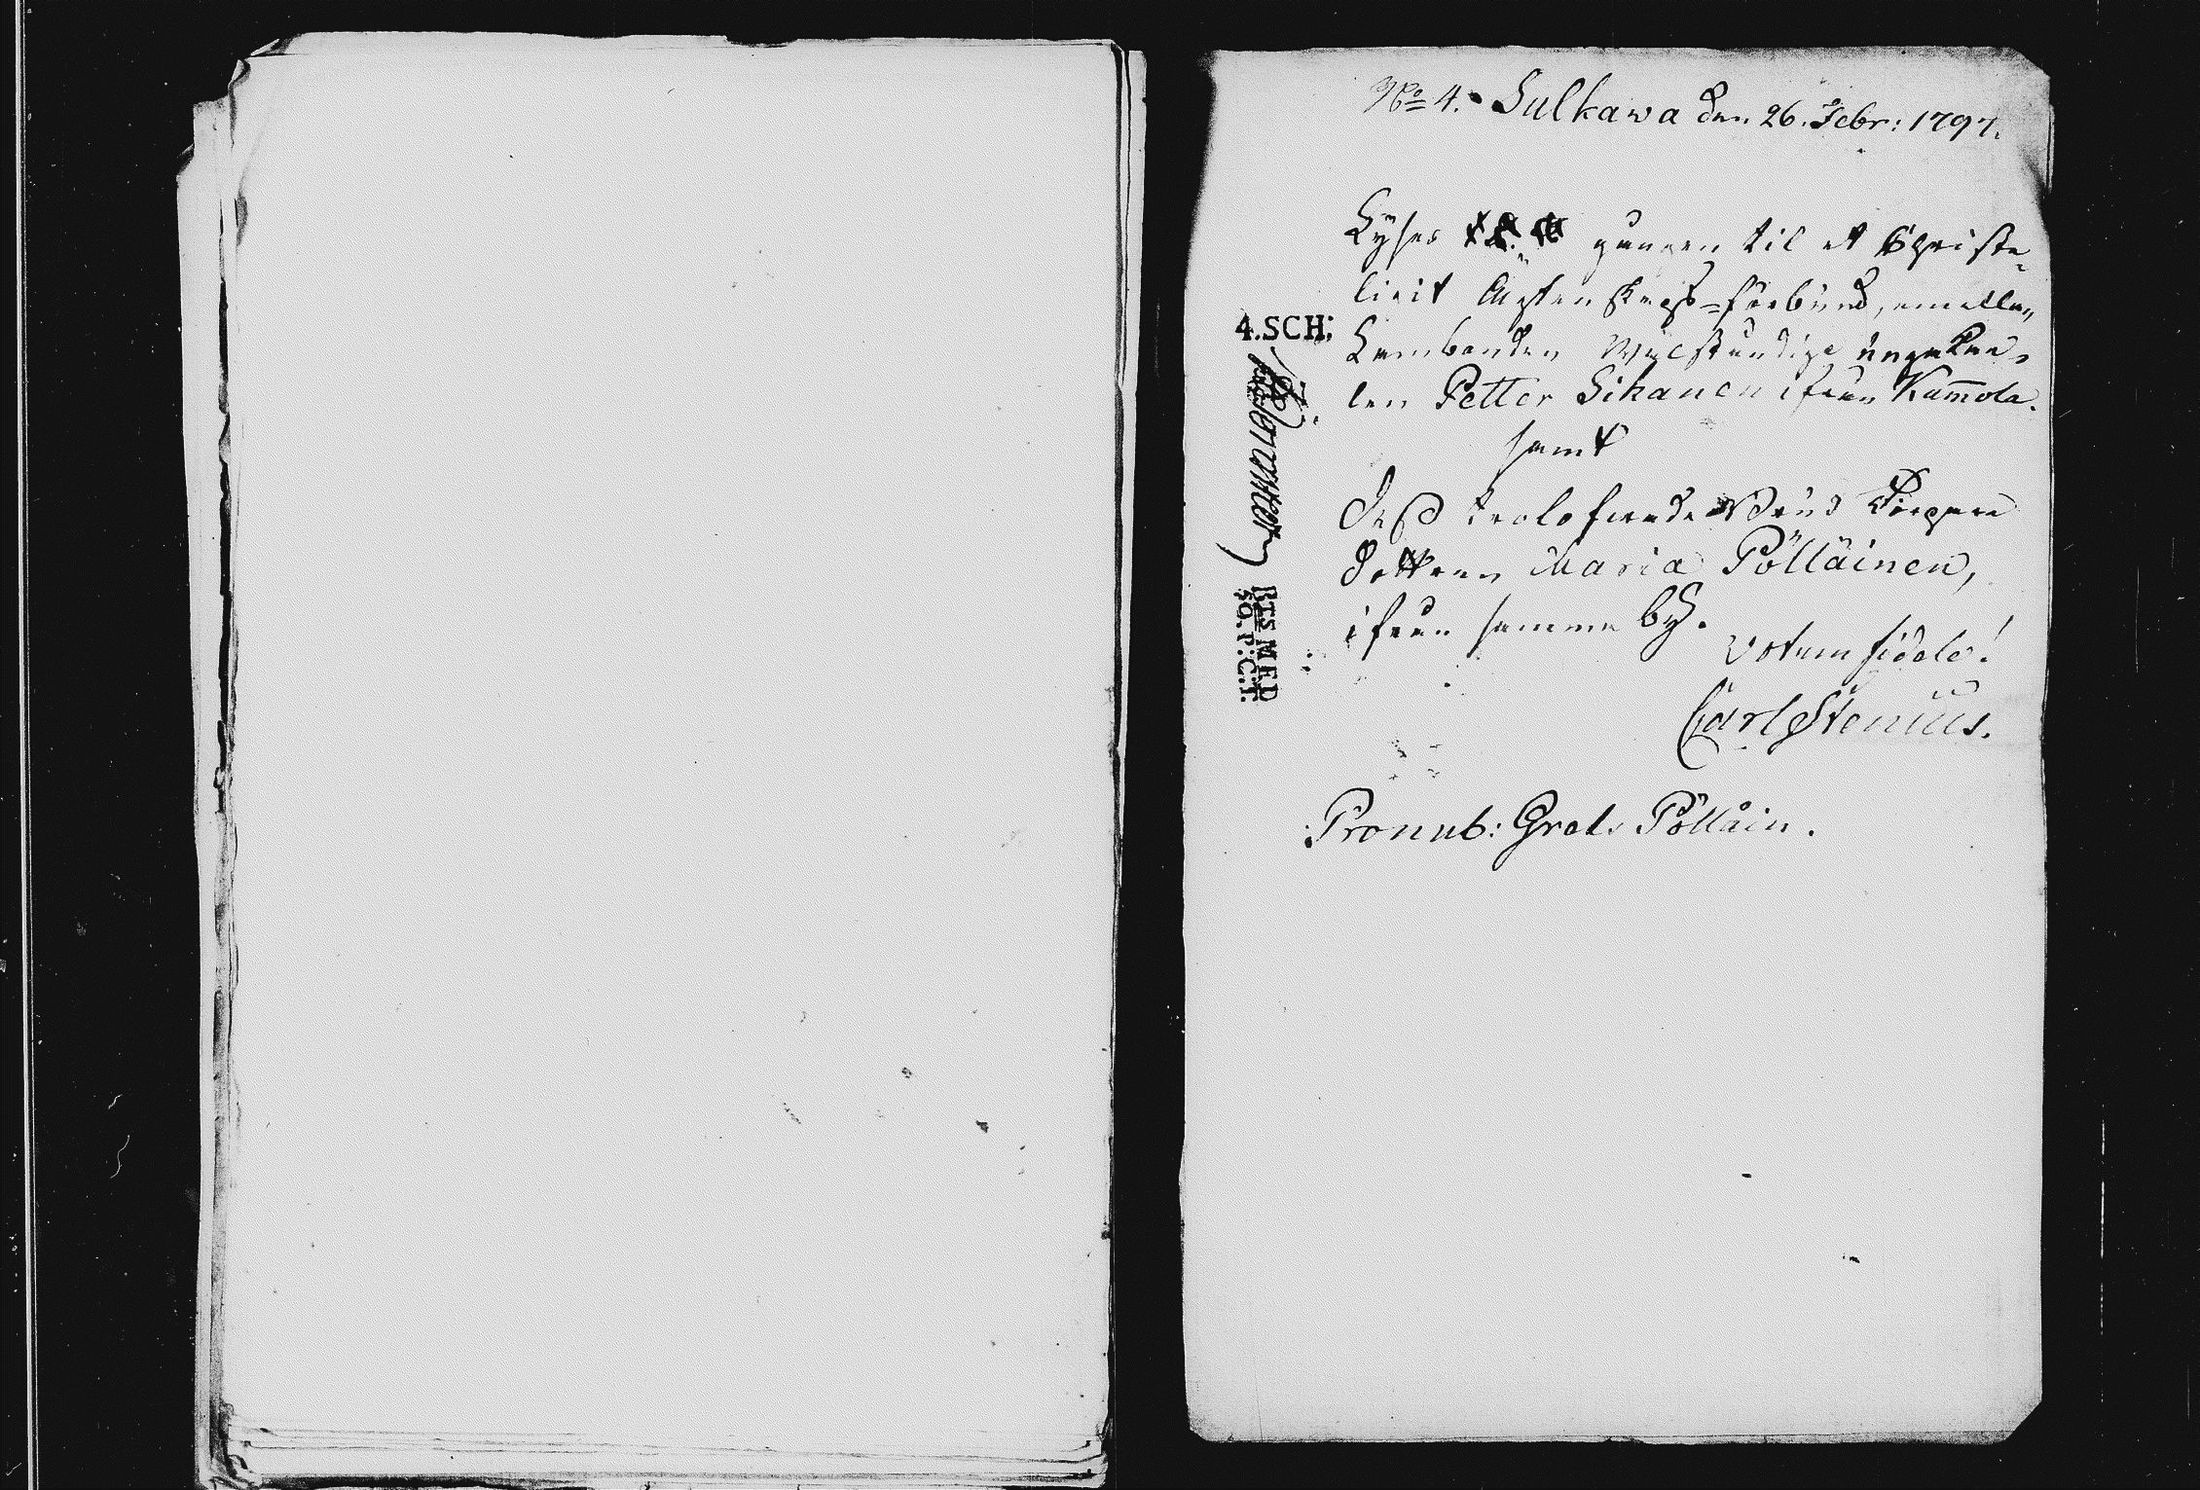 No 4. Sulkawa den 26. Febr: 1797.
Lyses gången til et Christe=
ligit Ächtenskaps=förbund, emellan
Landbonden Wälständige ungeka=
len Petter Sikanen ifrån Kamola.
samt
Dess trolofwade Brud Pigan
dottren Maria Pölläinen,
ifrån samma by.
votum fidele!
Carl Stenius.
Pronub: Gret. Pölläin.
4.SCH:
RTS MED
SO.P.C.I.